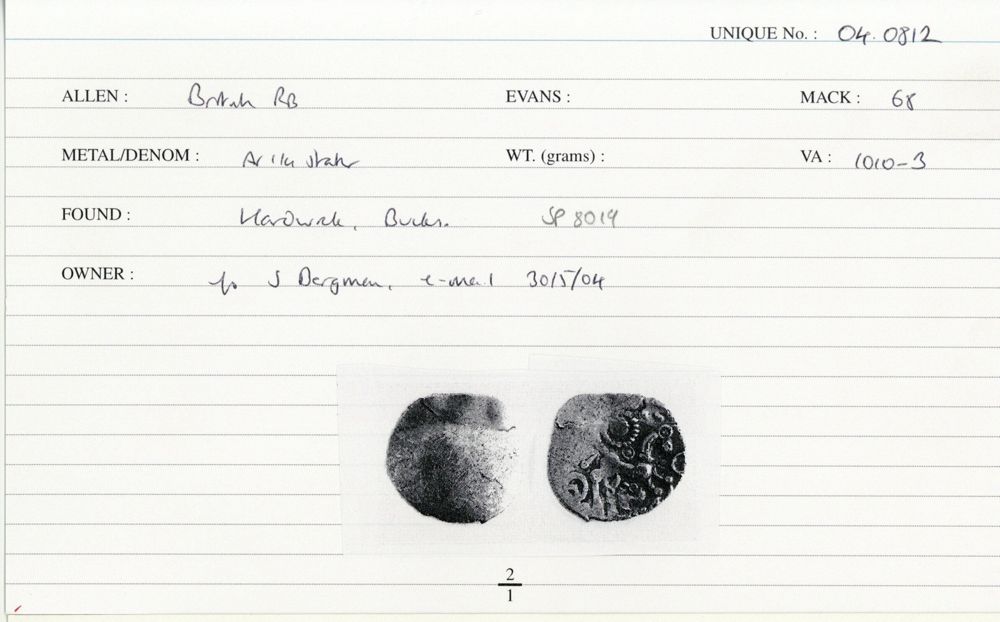 UNIQUE No. : 04.0812
ALLEN : British RB EVANS : MACK : 68
METAL/DENOM : Ar 1/4 stater WT. (grams) : VA : 1010-3
FOUND : Hardwick, Bucks. SP 8019
OWNER : S Bergman, e-mail 30/5/04
2
1